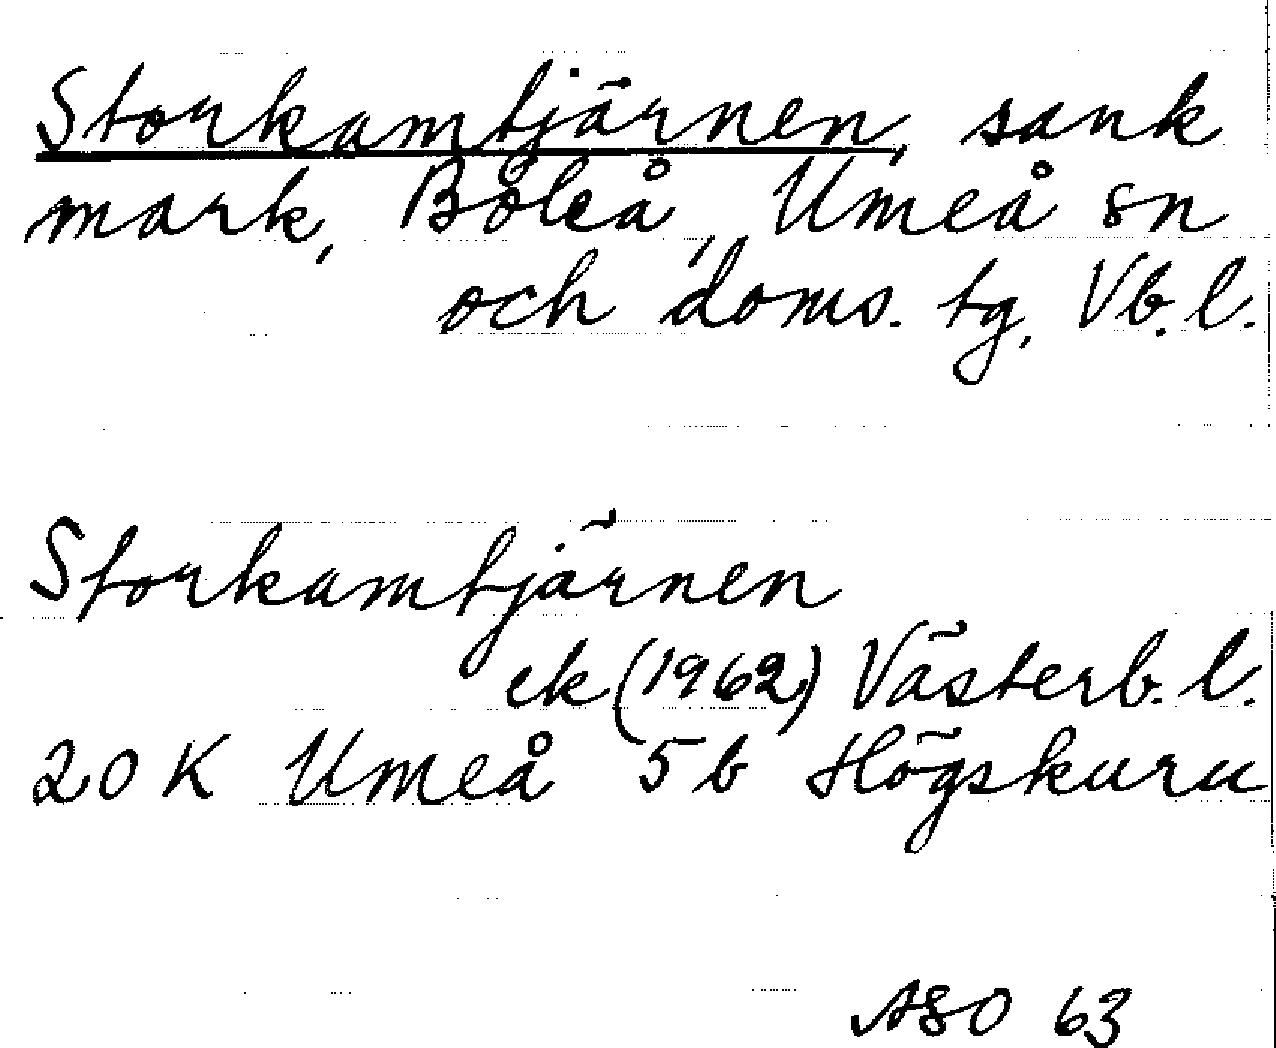 Storkamtjärnen, sank
mark, Böleå, Umeå sn
och doms. tg, Vb. l.
Storkamtjärnen
ek (1962) Västerb. l.
20 K Umeå 5b Högskuru
ASO 63